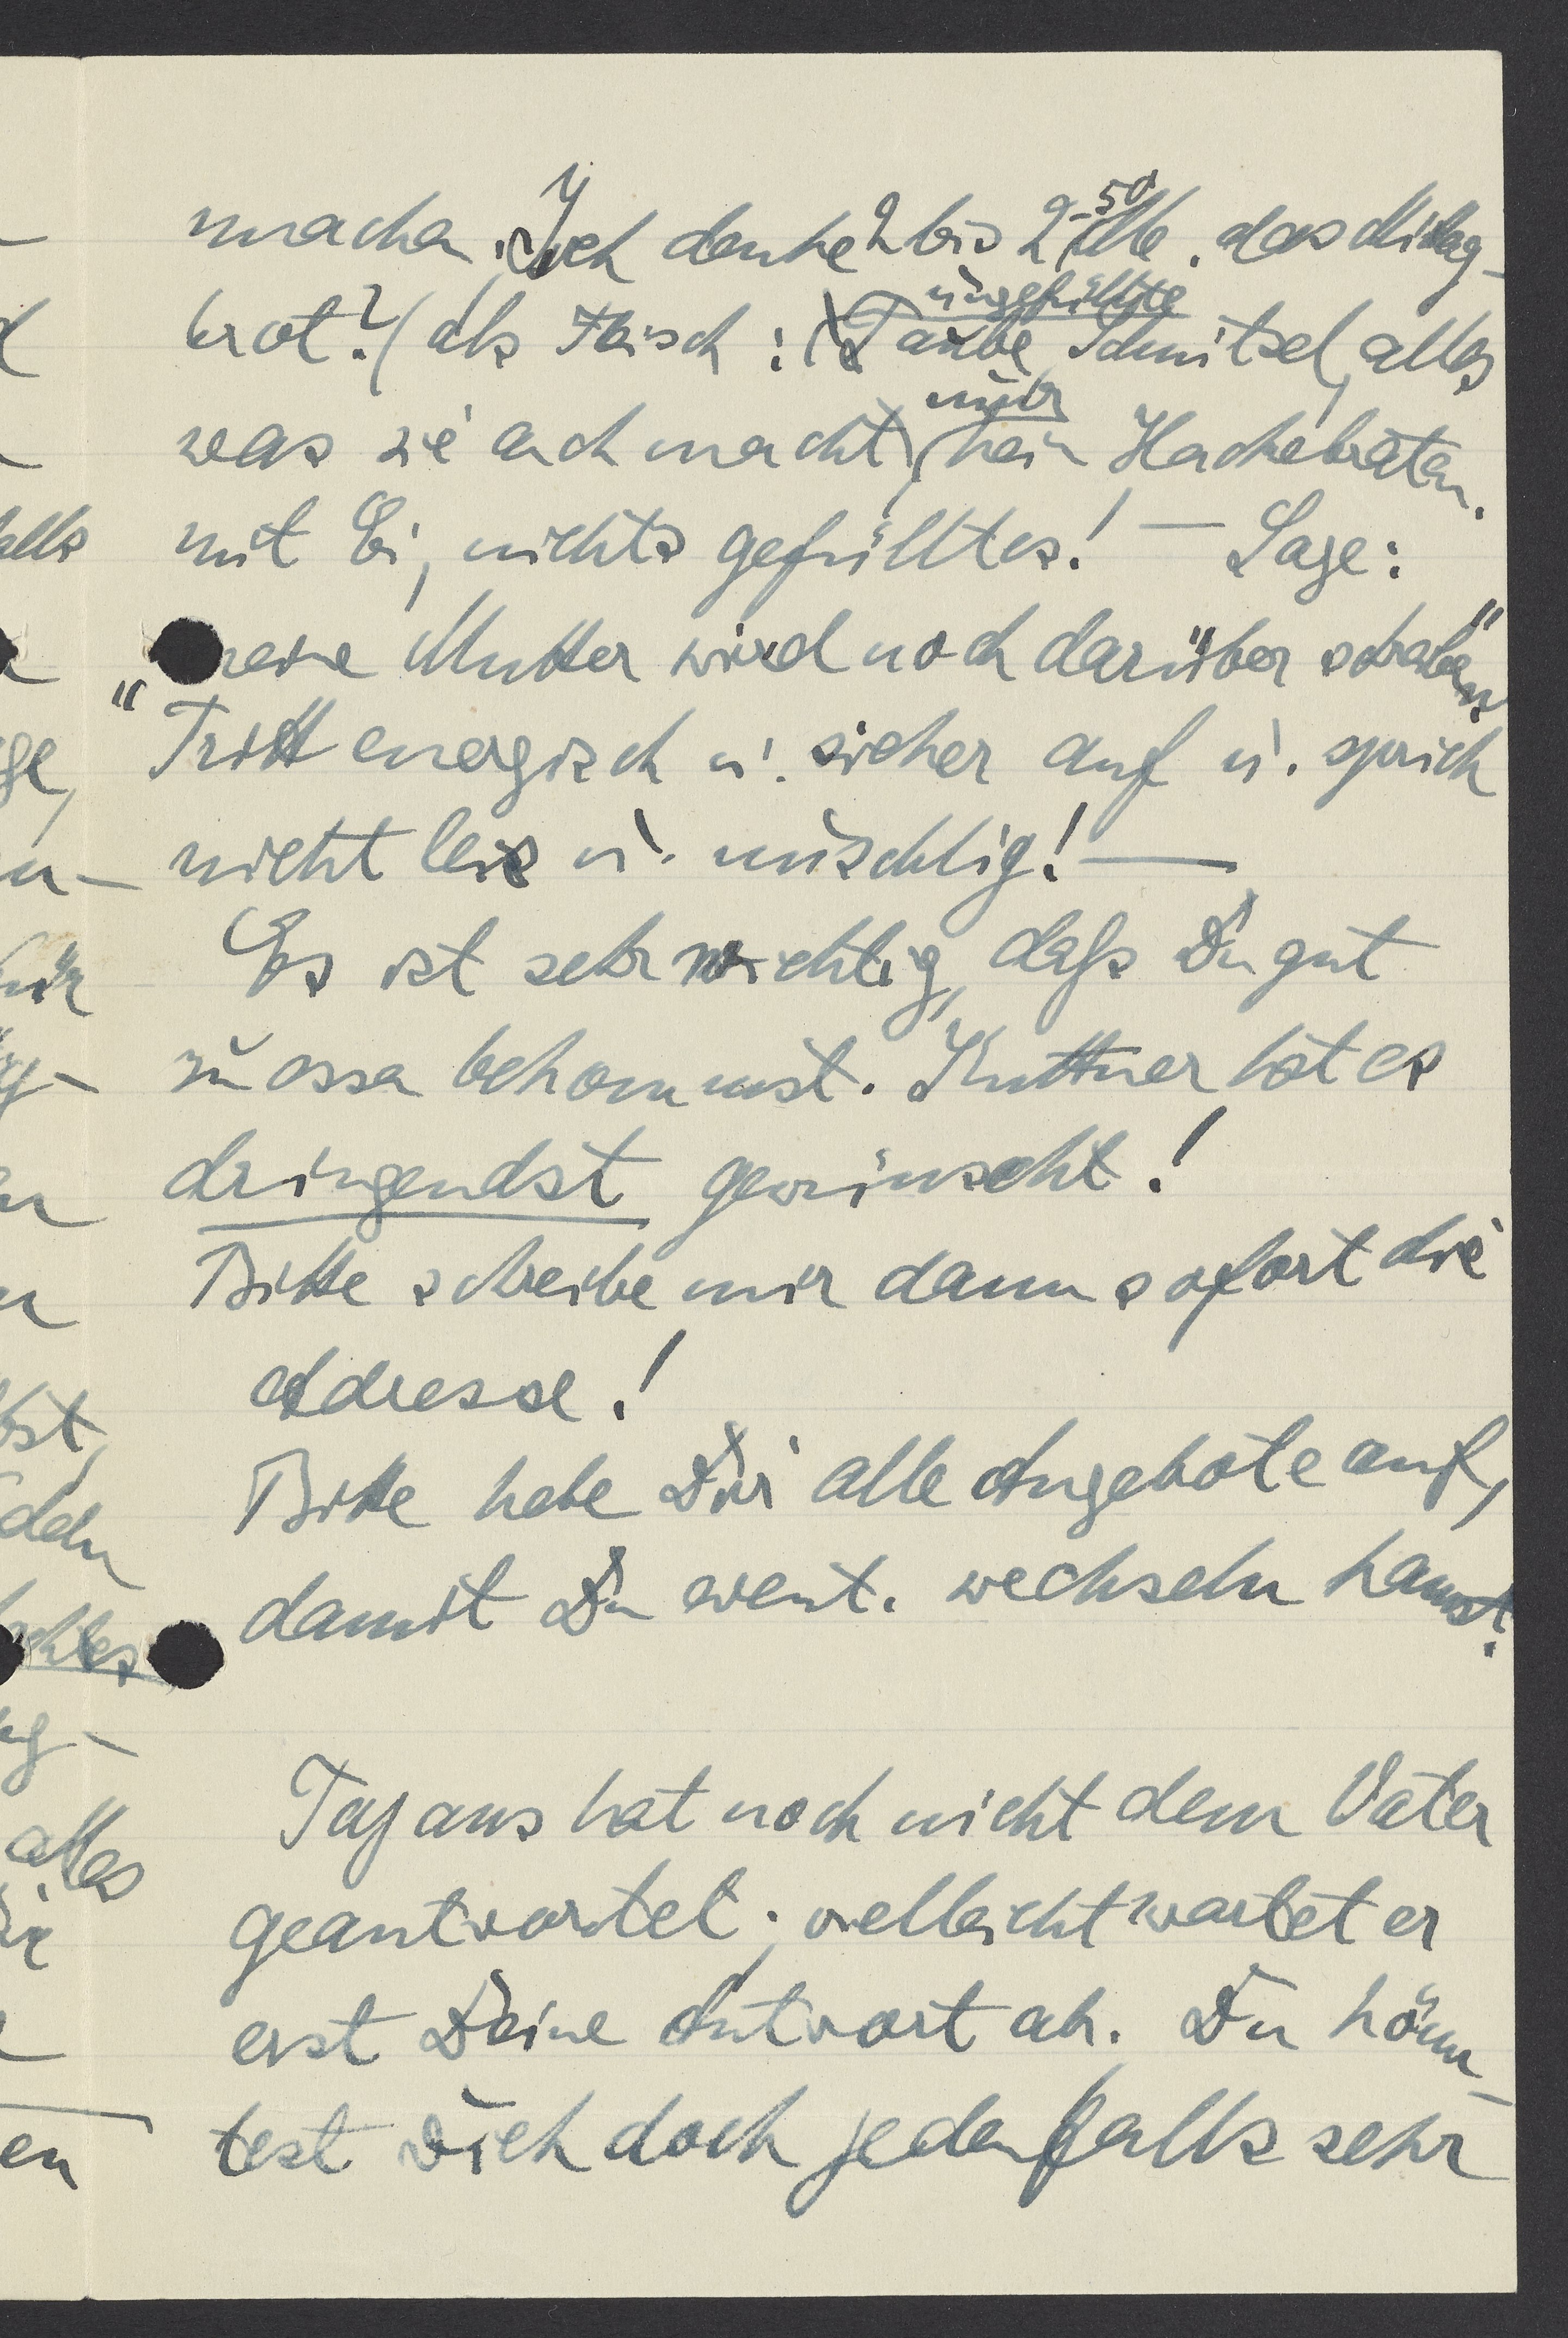 machen. Ich denke 2 bis 2,50 Mk. das Mittag-
brot? (als Fleisch: (Taube, ungefüllte Schnitzel, alles
was sie auch macht), nur kein Hackebraten
mit Ei, nichts gefülltes! — Sage:
"meine Mutter wird noch darüber schreiben"
Tritt energisch u. sicher auf u. sprich
nicht leis u. nuschlig! —
Es ist sehr wichtig, daß Du gut
zu essen bekommst. Kuttner hat es
dringendst gewünscht!
Bitte schreibe mir dann sofort die
Adresse!
Bitte hebe Dir alle Angebote auf,
damit Du event. wechseln kannst.
hat noch nicht dem Vater
geantwortet; vielleicht wartet er
erst Deine Antwort ab. Du könn-
test Dich doch jedenfalls sehr